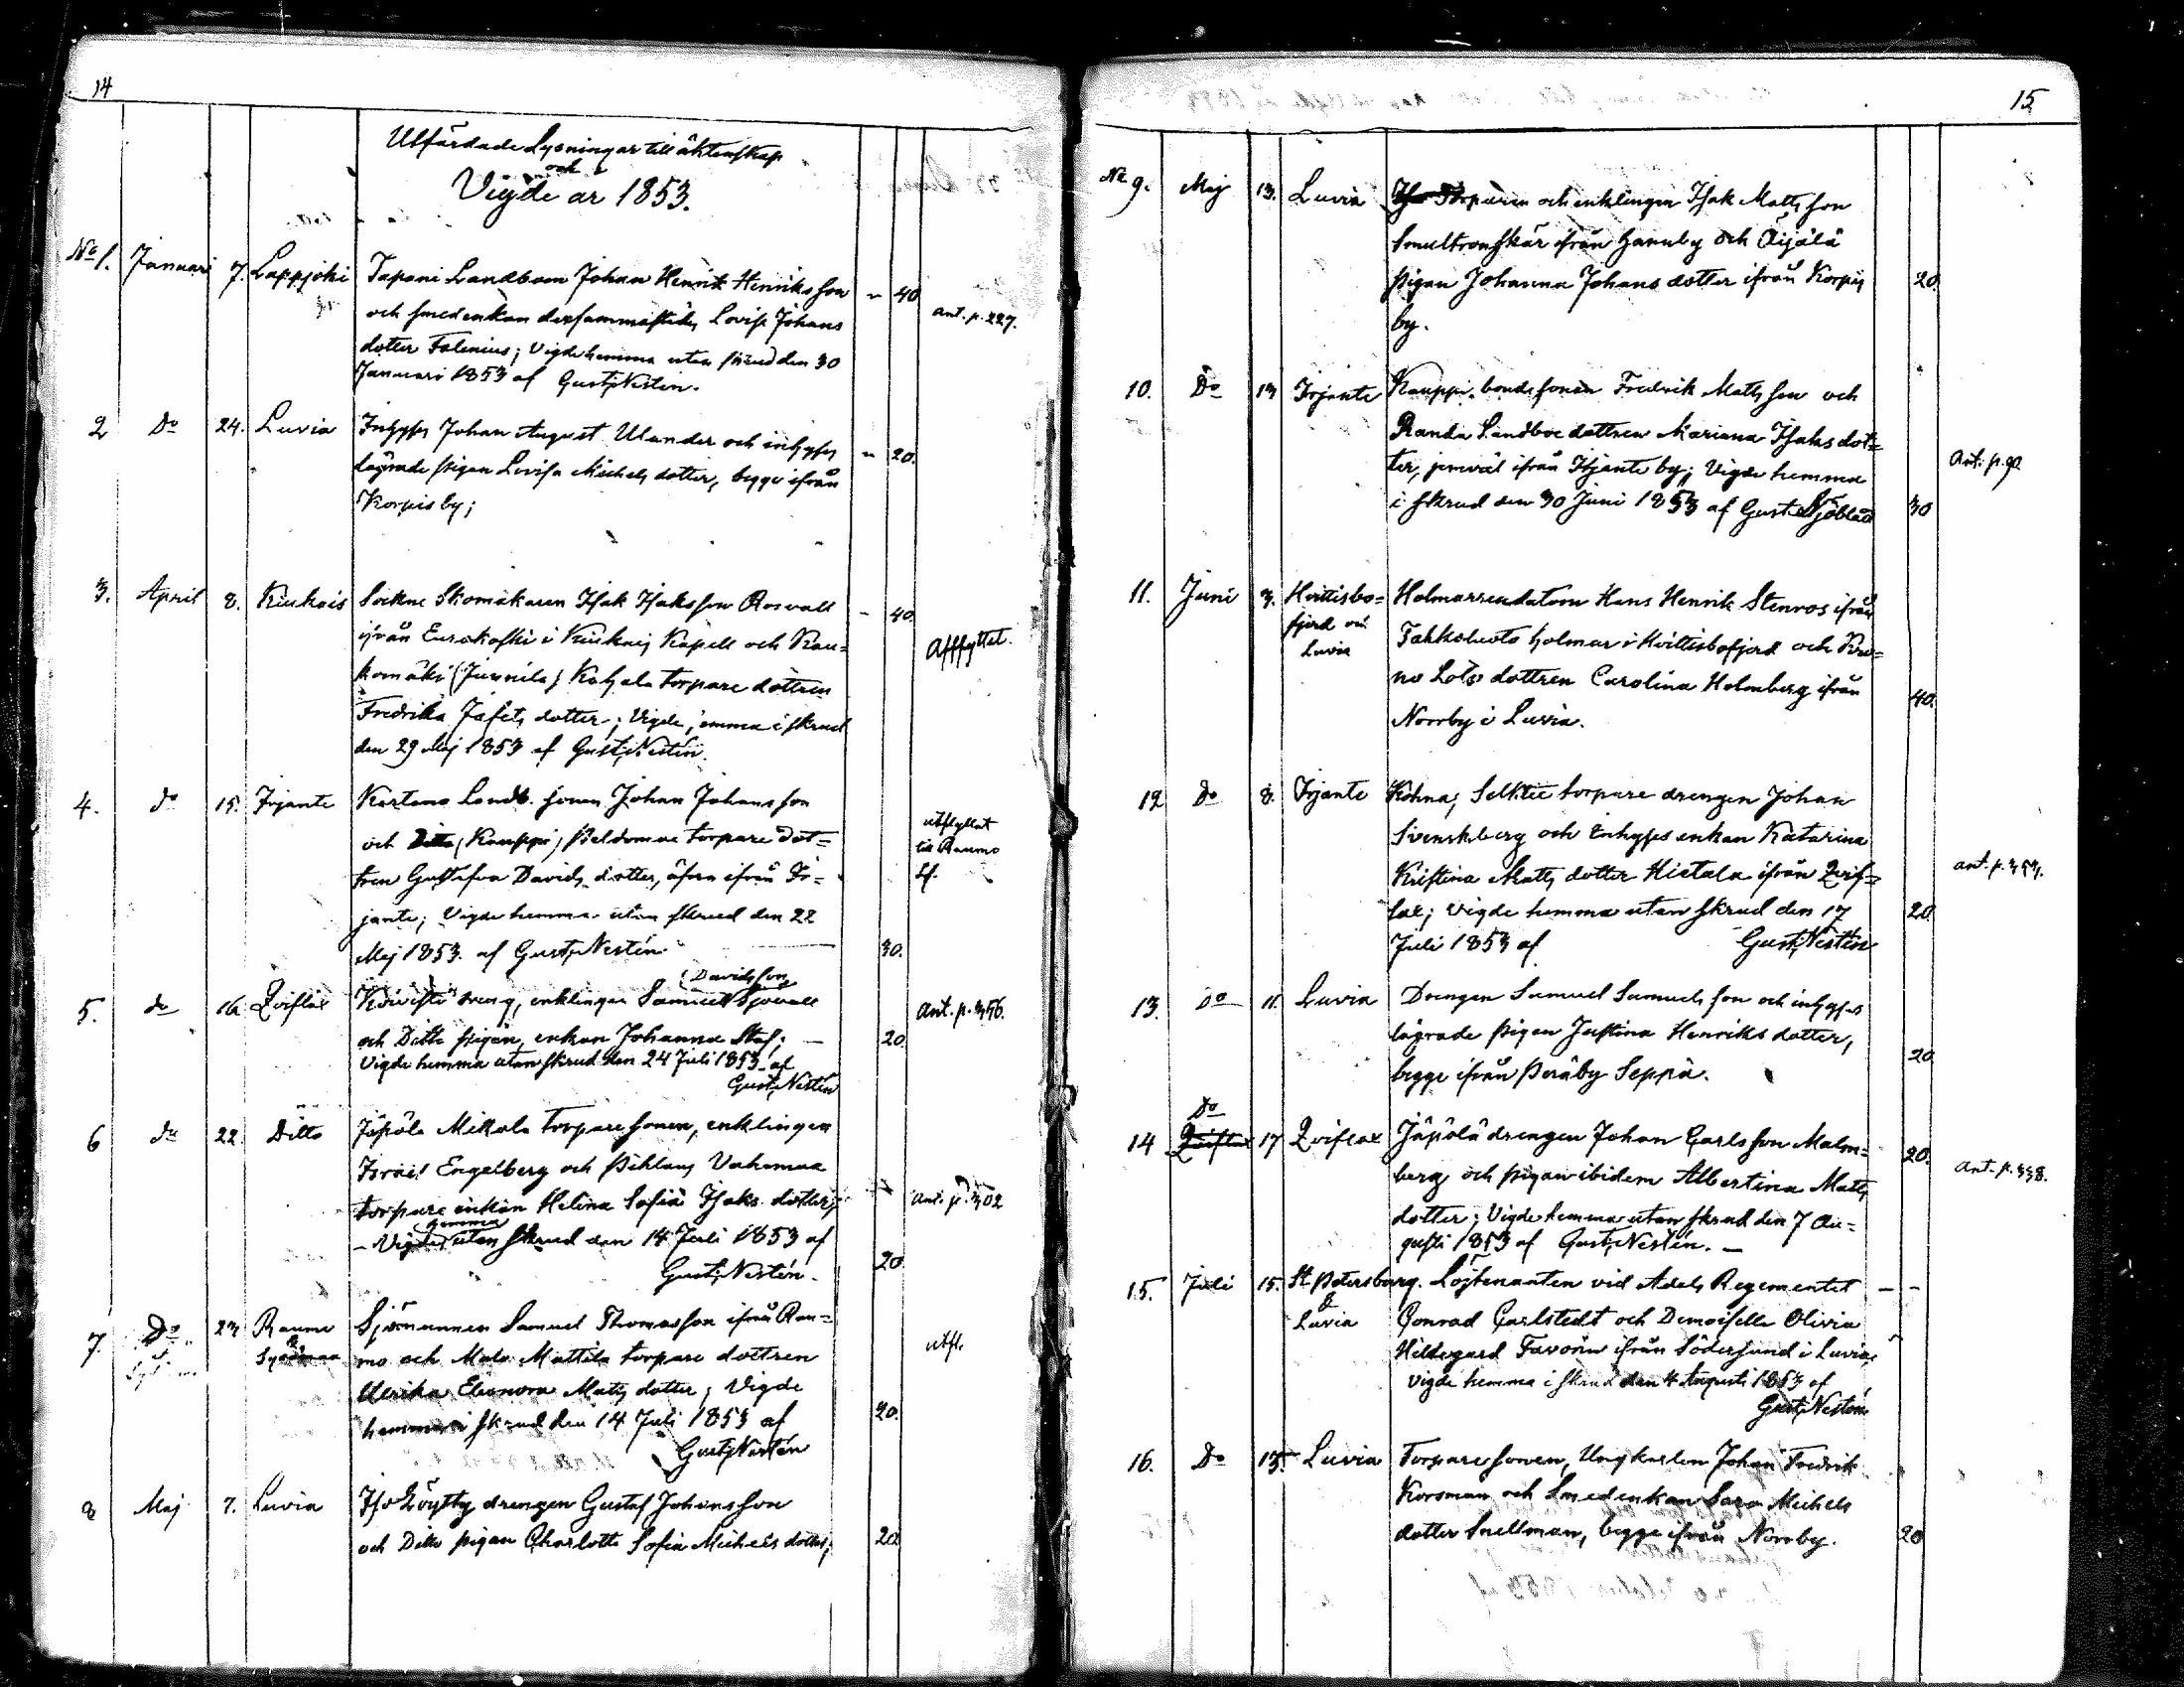 14
Utfärdade Lysningar till äktenskap
och
Vigde år 1853.
No 1. Januari 7. Lappjoki Tapani Landboen Johan Henrik Henriksson - 40
och smedenkan dersammastädes Lovisa Johans ant. p. 227.
dotter Falenius; Vigde hemma utan skrud den 30
Januari 1853 af Gust. Nestén.
2 Do 24. Luvia Inhyses Johan August Ulander och inhyses - 20.
lägrade pigan Lovisa Michels dotter, begge ifrån
Korpis by;
3. April 8. Kiukais Sockne Skomakaren Isak Isaksson Rosvall - 40.
ifrån Eurakoski i Kiukais Kapell och Kau= Afflyttat.
komäki (Junnila) Kahala torpare dottren
Fredrika Jafets dotter; Vigde hemma i skrud
den 29 Maj 1853 af Gust. Nestén.
4. do 15. Irjante Kartano Landb. sonen Johan Johansson
och Ditto (Kauppi) Peldomaa torpare dot= utflyttat
tren Gustafva Davids dotter, äfven ifrån Ir= till Raumo
jante; Vigde hemma utan skrud den 22 Sf.
Maj 1853. af Gust. Nestén 30.
(Davidsson
5. do 16 Qvislax dreng, enklingen Samuel Sjövall ant. p. 356.
och Ditto pigan, enkan Johanna Staf; 20.
Vigde hemma utan skrud den 24 Juli 1853 af
Gust. Nestén
6 do 22. Ditto Jöpölä Mikola torpare sonen, enklingen
Israel Engelberg och Pihlaus Vahemaa
torpare enkan Helena Sofia Isaks dotter; ant. p. 302
hemma
- Vigde utan skrud den 14 Juli 1853 af
Gust. Nestén. 20
7. Do 23 Raumo Sjömannen Samuel Thomasson ifrån Rau=
& mo och Mala Mattila torpare dottren utfl.
Ulrika Eleonora Mats dotter; Vigde
hemma i skrud den 14 Juli 1853 af 20.
Gust. Nestén
8 Maj 7. Luvia Iso Löytty drengen Gustaf Johansson
och Ditto pigan Charlotta Sofia Michels dotter; 20
15
No 9. Maj 13. Luvia Torparen och enklingen Isak Matts son
Smultronskär ifrån Hannby och Äijälä
pigan Johanna Johans dotter ifrån Korpis 20.
by.
10. Do 13 Irjante Kauppi bondesonen Fredrik Matts son och
Randa Landboe dottren Mariana Isaks dot=
ter, jemväl ifrån Irjante by; Vigde hemma Ant. p. 90
i skrud den 30 Juni 1853 af Gust. Sjöblad 30
11. Juni 3. Hvittisbo= Holmarrendatorn Hans Henrik Stenros ifrån
fjerd och Tahkoluoto holmar i Hvittisbofjerd och Kro=
Luvia no Lots dottren Carolina Holmberg ifrån
Norrby i Luvia. 40.
12 Do 8. Irjante Köhna, torpare drengen Johan
Svenskberg och Inhyses enkan Katarina
Kristina Matts dotter Hietala ifrån Qvis= ant. p. 353.
lax; Vigde hemma utan skrud den 17 20.
Juli 1853 af Gust. Nestén
13. Do 11. Luvia Drengen Samuel Samuels son och inhyses
lägrade pigan Justina Henriks dotter,
begge ifrån Peräby Seppä. 20
Do
14 Qvislax 17 Qvislax Jöpölä drengen Johan Carlsson Malm= 20.
berg och pigan ibidem Albertina Matts ant. p. 338.
dotter; Vigde hemma utan skrud den 7 Au=
gusti 1853 af Gust. Nestén. -
15. Juli 15. St. Petersburg. Löjtenanten vid Adels Regementet - -
& Conrad Carlstedt och Demoiselle Olivia
Luvia Hildegard Favorin ifrån Södersund i Luvia;
Vigde hemma i skrud den 4 Augusti 1853 af
Gust. Nestén
16. Do 15. Luvia Torparesonen, Ungkarlen Johan Fredrik
Korsman och Smedenkan Sara Michels
dotter Snellman, begge ifrån Norrby. 20